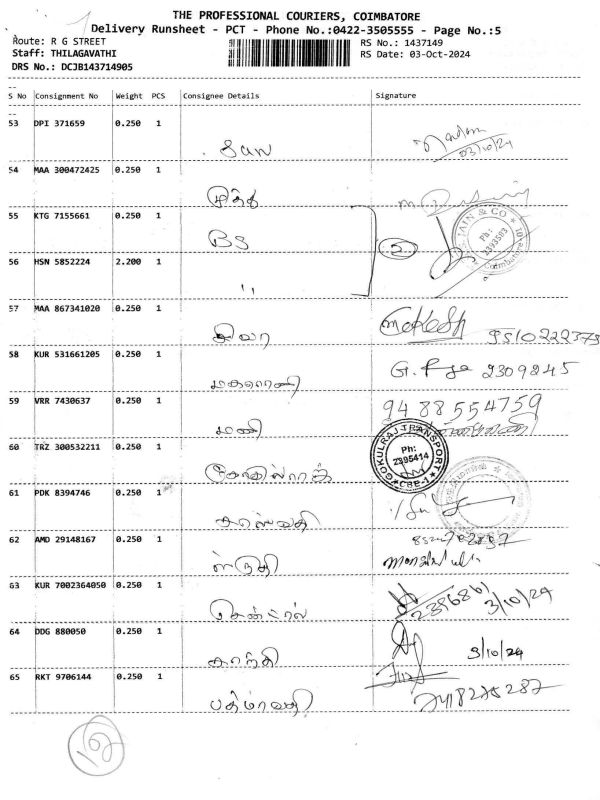 THE PROFESSIONAL COURIERS, COIMBATORE
Delivery Runsheet - PCT - Phone No.:0422-3505555 - Page No.:5
Route: R G STREET
RS No.: 1437149
Staff: THILAGAVATHI
RS Date: 03-Oct-2024
DRS No.: DCJB143714905
S No Consignment No Weight PCS Consignee Details Signature
53 DPI 371659 0.250 1
Sun
03/10/24
54 MAA 300472425 0.250 1
மித்
55 KTG 7155661 0.250 1
BS
2
JAIN & CO
Ph: 2393503
Coimbatore
56 HSN 5852224 2.200 1
"
57 MAA 867341020 0.250 1
சிவா
Mokesh
58 KUR 531661205 0.250 1
மகாராணி
G. 2309845
59 VRR 7430637 0.250 1
மணி
94 88 554759
60 TRZ 300532211 0.250 1
கோகுல்ராஜ்
GOKULRAJ TRANSPORT
Ph: 2395414
CBE-1
61 PDK 8394746 0.250 1
சரஸ்வதி
62 AMD 29148167 0.250 1
ஸ்ருதி
63 KUR 7002364050 0.250 1
சென்ட்ரல்
3/10/24
64 DDG 880050 0.250 1
காந்தி
3/10/24
65 RKT 9706144 0.250 1
பத்மாவதி
7418275287